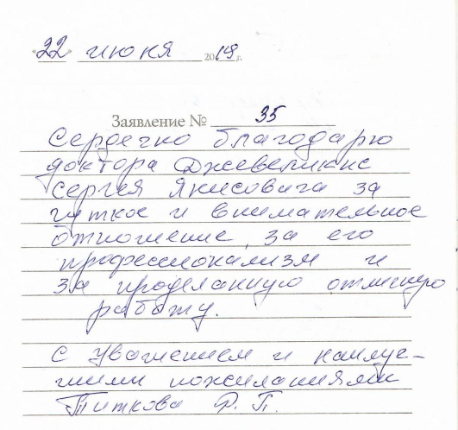 "22" июня 2019 г.
Заявление № 35
Сердечно благодарю
доктора
Сергея Янисовича за
чуткое и внимательное
отношение, за его
профессионализм и
за проделанную отличную
работу.
С уважением и наилуч-
шими пожеланиями
Титкова Р. П.